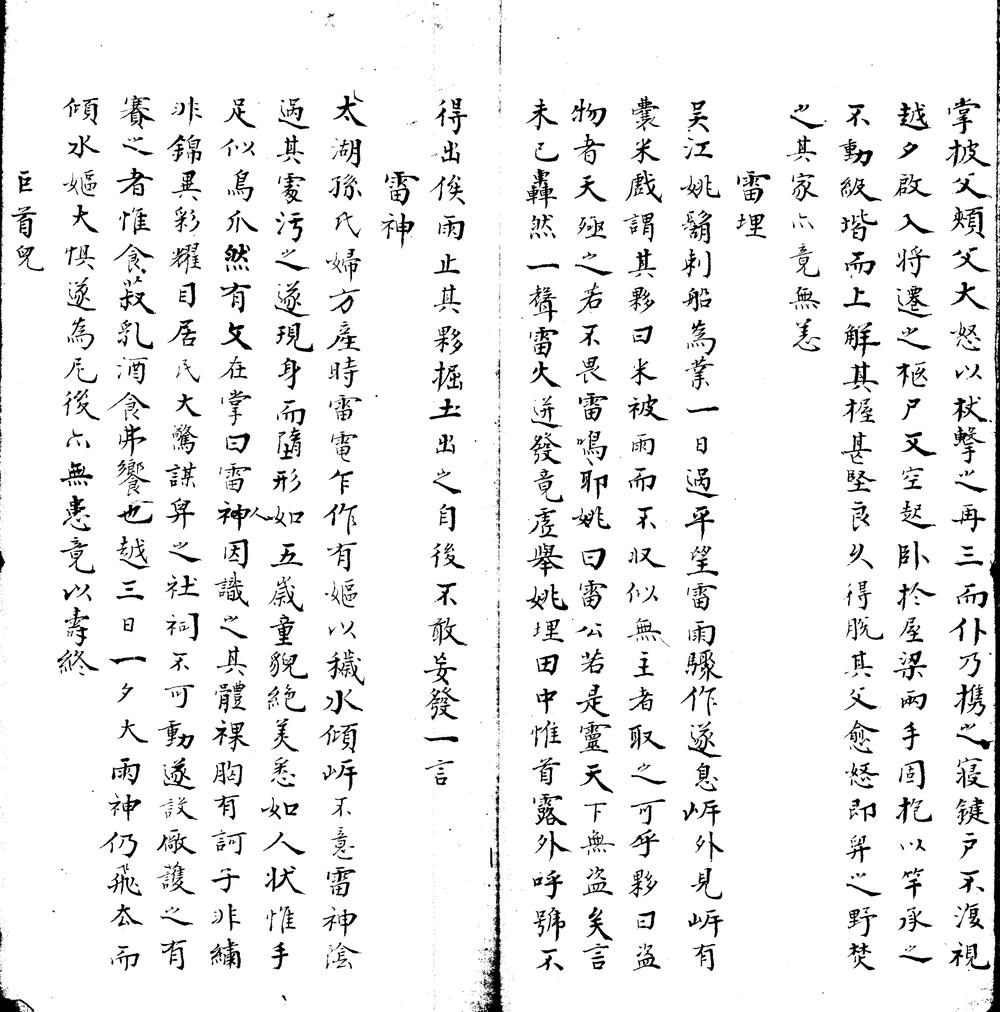 掌披父頰父大怒以杖擊之再三而仆乃携之寝鍵戸不復視
越夕啟入将遷之柩尸又空起卧扵屋梁兩手固抱以竿承之
不動級堦而上解其握甚堅良久得脫其父愈怒即舁之野焚
之其家亦竟無恙
雷埋
吴江姚鬍剌船為業一日過平望雷雨驟作遂息岸外見岸有
囊米戲謂其夥曰米被雨而不収似無主者取之可乎夥曰盜
物者天殛之若不畏雷鳴耶姚曰雷公若是靈天下無盜矣言
未已轟然一聲雷火迸發竟虗舉姚埋田中惟首露外呼號不
得出俟雨止其夥掘土出之自後不敢妄發一言
雷神
太湖孫氏婦方產時雷電乍作有嫗以穢水傾岸不意雷神陰
過其處污之遂現身而墮形如五歲童貌絶美悉如人状惟手
足似鳥爪然有文在掌曰雷神因識之其體裸胸有訶子非繡
非錦異彩耀目居民大驚謀舁之社祠不可動遂設廠護之有
賽之者惟食菽乳酒食弗饗也越三日一夕大雨神仍飛去而
傾水嫗大惧遂為尼後亦無恙竟以壽終
巨首兒